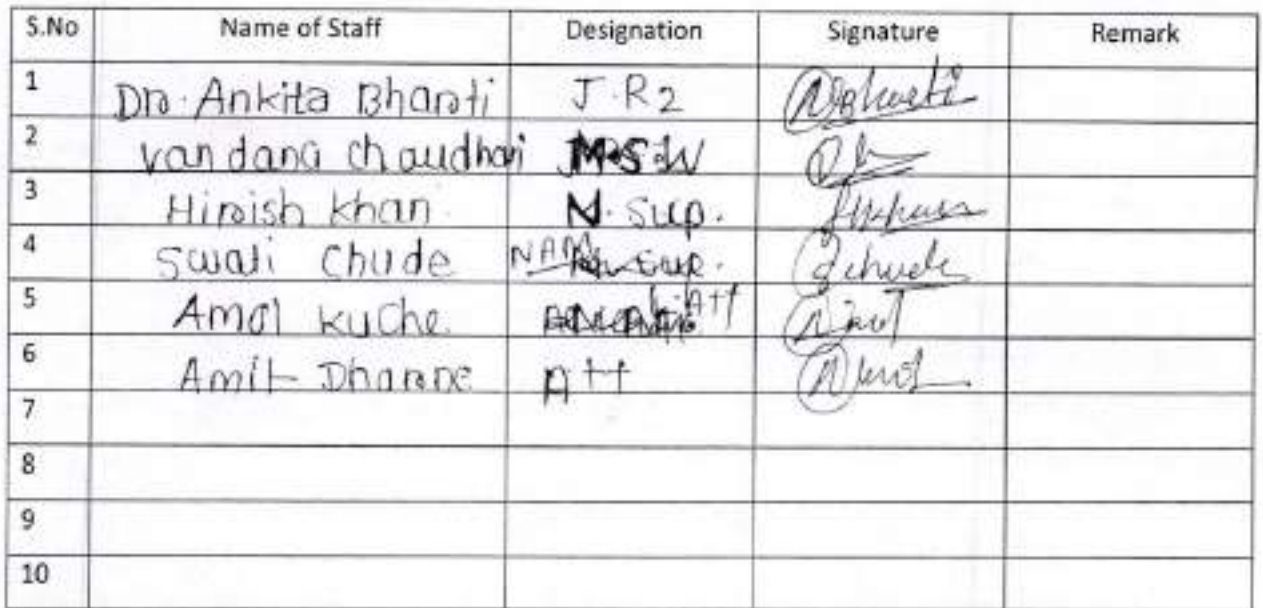 S.No Name of Staff Designation Signature Remark
1 Dr. Ankita Bharti J.R2
2 Vandana chaudhari M.S.W
3 Hirish Khan. N. Sup.
4 Swati Chude
5 Amol Kuche Att
6 Amit Dharne Att
7
8
9
10